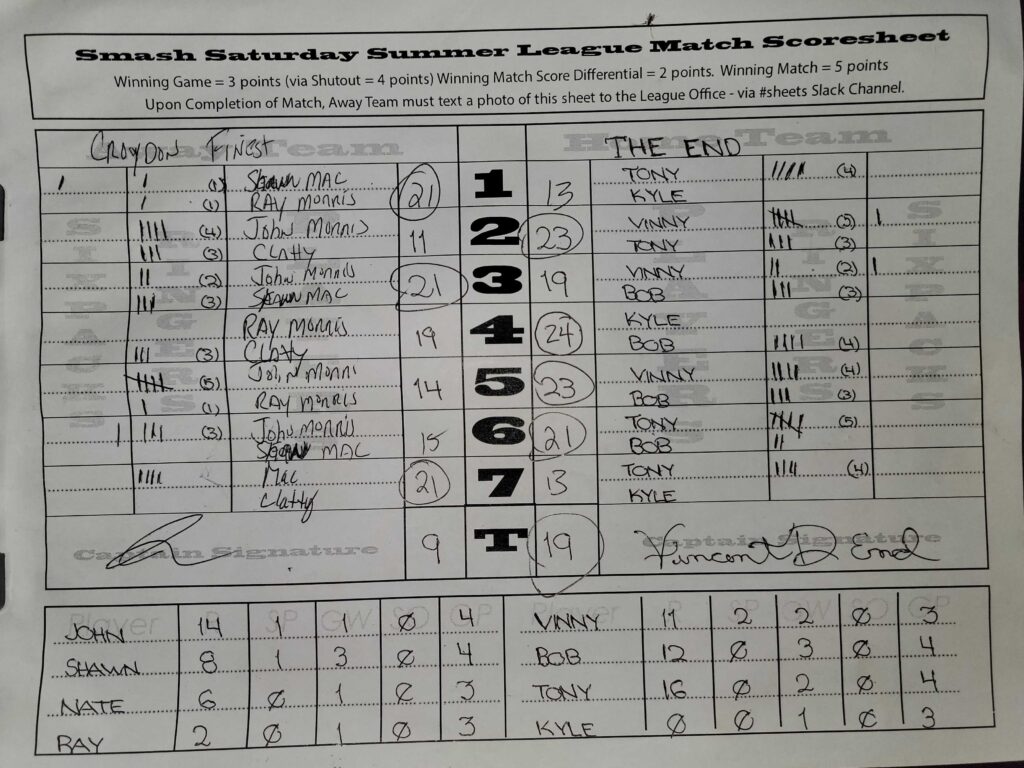 Smash Saturday Summer League Match Scoresheet
Winning Game = 3 points (via Shutout = 4 points) Winning Match Score Differential = 2 points. Winning Match = 5 points
Upon Completion of Match, Away Team must text a photo of this sheet to the League Office - via #sheets Slack Channel.
CROYDON FINEST THE END
(1) SHAWN MAC 21 1 13 TONY (4)
(1) RAY MORRIS KYLE
(4) John MORRIS 11 2 23 VINNY (5)
(3) Clatty TONY (3)
(2) John Morris 21 3 19 VINNY (2)
(3) SHAWN MAC BOB (3)
RAY MORRIS 19 4 24 KYLE
(3) Clatty BOB (4)
(5) John MORRI 14 5 23 VINNY (4)
(1) RAY MORRIS BOB (3)
(3) John MORRIS 15 6 21 TONY (5)
SHAWN MAC BOB
MAC 21 7 13 TONY (4)
Clatty KYLE
Captain Signature 9 T 19 Captain Signature
Vincent D End
Player P SP GW SO GP Player P SP GW SO GP
JOHN 14 1 1 Ø 4 VINNY 11 2 2 Ø 3
SHAWN 8 1 3 Ø 4 BOB 12 Ø 3 Ø 4
NATE 6 Ø 1 Ø 3 TONY 16 Ø 2 Ø 4
RAY 2 Ø 1 Ø 3 KYLE Ø Ø 1 Ø 3